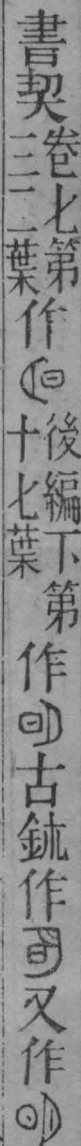 書契卷七第葉作後編下第十七葉作古鉥作又作